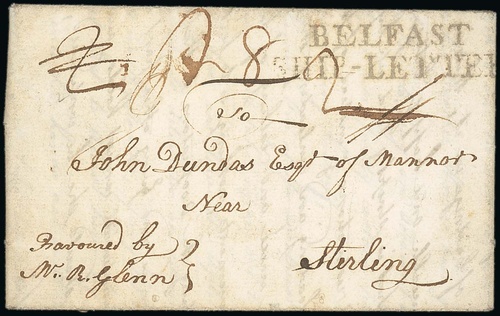 BELFAST
SHIP-LETTER
8
2
To
John Dundas Esqr of Mannor
Near
Stirling
Favoured by
Mr. R. Glenn